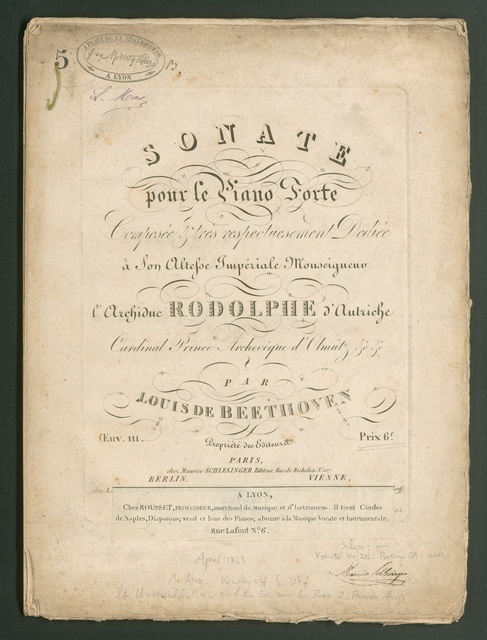 5
PLACE DE LA
A LYON
SONATE
pour le Piano Forte
Composée & très respectueusement Dediée
à Son Altesse Impériale Monseigneur
l'Archiduc RODOLPHE d'Autriche
Cardinal Prince Archevêque d'Olmütz &. &.
PAR
LOUIS DE BEETHOVEN
Œuv. 111.
Propriété des Editeurs
Prix 6f
PARIS,
chez Maurice SCHLESINGER Editeur, Rue de Richelieu No 107
BERLIN, VIENNE,
A LYON,
Chez ROUSSET, PROFESSEUR, marchand de Musique et d'Instrumens. Il tient Cordes
de Naples, Diapasons; vend et loue des Pianos, abonne à la Musique Vocale et Instrumentale,
Rue Lafont No 6.
April 1823
Maurice Schlesinger